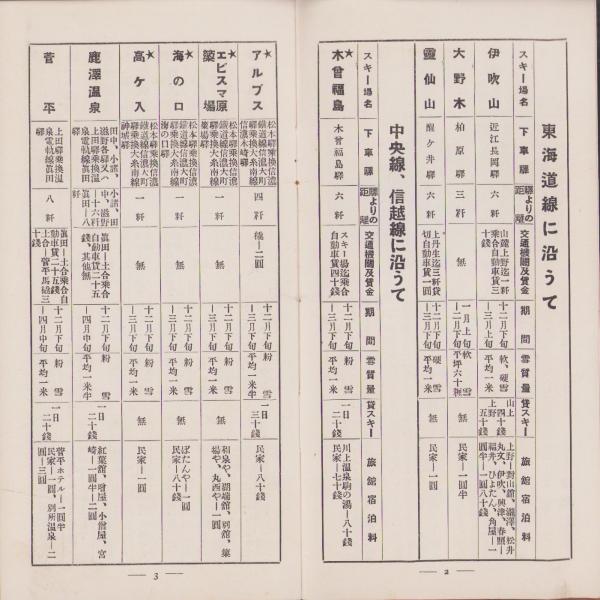 東海道線に沿うて
スキー場名
下車驛
驛よりの距離
交通機關及賃金
期間
雪質量
貸スキー
旅館宿泊料
伊吹山
近江長岡驛
六粁
山麓上野迄一粁
乘合自動車賃三
十錢
十二月下旬
―三月上旬
軟、硬雪
平均一米
山上
四十錢
上野
五十錢
上野―對山舘、瀧澤、松井
丸文、伊吹、興津、春照―
福井、ひょたん、角屋―一
圓半、一圓、一圓八十錢
大野木
柏原驛
三粁
無
一月上旬
―二月下旬
軟雪
平坪六十糎
無
民家―一圓半
靈仙山
醒ケ井驛
六粁
上丹生迄三粁貸
切自動車賃一圓
十二月下旬
―三月下旬
硬雪
平均一米
無
民家―一圓
中央線、信越線に沿うて
スキー場名
下車驛
驛よりの距離
交通機關及賃金
期間
雪質量
貸スキー
旅館宿泊料
★木曾福島
木曾福島驛
六粁
スキー場迄乘合
自動車賃四十錢
十二月下旬
―三月下旬
粉雪
平均一米
川上温泉駒の湯―八十錢
民家―七十錢
― 2 ―
★アルプス
松本驛乘換信濃
鐵道線信濃大町
驛乘換大糸南線
信濃木崎驛
四粁
橇―二圓
十二月下旬
―三月下旬
粉雪
平均一米半
一日
三十錢
民家―八十錢
★エビスマ原
簗場
松本驛乘換信濃
鐵道線信濃大町
驛乘換大糸南線
簗場驛
一粁
無
十二月下旬
―三月下旬
粉雪
平均一米
無
和泉や、湖端舘、別舘、簗
場や、丸西や―一圓
★海の口
松本驛乘換信濃
鐵道線信濃大町
驛乘換大糸南線
海の口驛
一粁
無
十二月下旬
―三月下旬
粉雪
平均一米
無
ぼたんや―一圓
民家―八十錢
★高ケ入
松本驛乘換信濃
鐵道線信濃大町
驛乘換大糸南線
神城驛
一粁
無
十二月下旬
―三月下旬
粉雪
平均一米
無
民家―一圓
鹿澤温泉
田中、小諸、
滋野各驛又ハ
上田驛乘換温
泉電軌線眞田
驛
小諸、田
中、滋野
―十六粁
眞田―八
粁
眞田―土合乘合
自動車賃二十五
錢、其他無
十二月下旬
―四月中旬
粉雪
平均一米半
一日
二十錢
紅葉舘、增屋、小僧屋、宮
崎―一圓半―二圓
菅平
上田驛乘換温
泉電軌線眞田
驛
八粁
眞田―土合乘合自
動車賃二十五錢
土合―菅平馬橇三
十錢
十二月下旬
―四月中旬
粉雪
平均一米
一日
二十錢
菅平ホテル―一圓半
民家―一圓、別所温泉―二
圓―三圓
― 3 ―